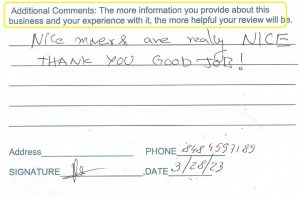 Additional Comments: The more information you provide about this
business and your experience with it, the more helpful your review will be.
Nice movers are really NICE
THANK YOU GOOD JOB!
Address PHONE 8484597189
SIGNATURE DATE 3/28/23